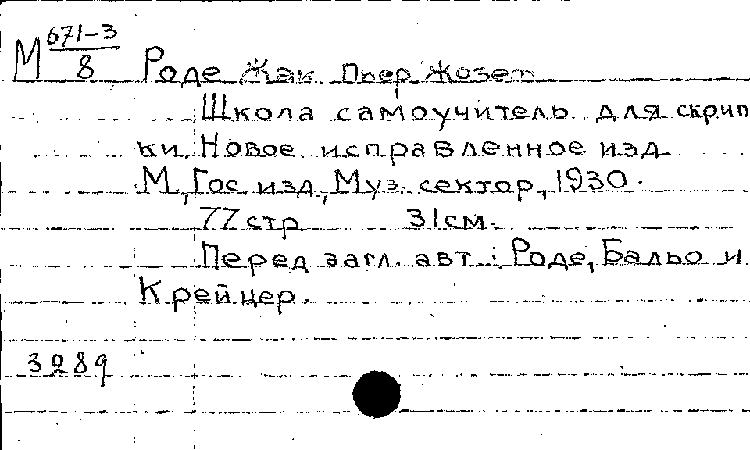 М 671-3/8 Роде Жак Пьер Жозеф
Школа самоучитель для скрип
ки. Новое исправленное изд.
М, Гос изд., Муз. сектор, 1930.
77 стр 31 см.
Перед загл. авт.: Роде, Бальо и
Крейцер.
3289